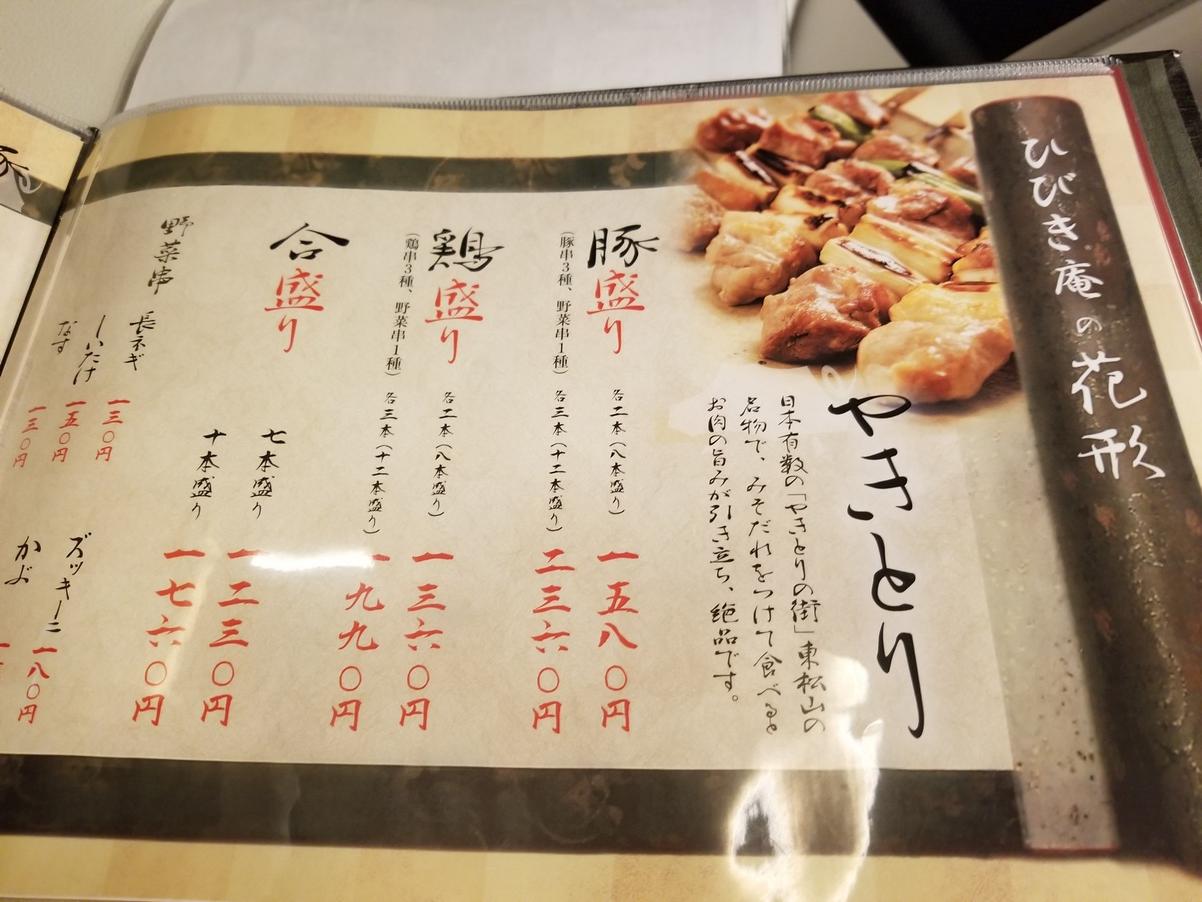 ひびき庵の花形
やきとり
日本有数の「やきとりの街」東松山の
名物で、みそだれをつけて食べると
お肉の旨みが引き立ち、絶品です。
豚盛り
(豚串3種、野菜串1種)
各二本(八本盛り) 一五八〇円
各三本(十二本盛り) 二三六〇円
鶏盛り
(鶏串3種、野菜串1種)
各二本(八本盛り) 一三六〇円
各三本(十二本盛り) 一九九〇円
合盛り
七本盛り 一二三〇円
十本盛り 一七六〇円
野菜串
長ネギ 一三〇円
しいたけ 一五〇円
なす 一三〇円
ズッキーニ 一八〇円
かぶ